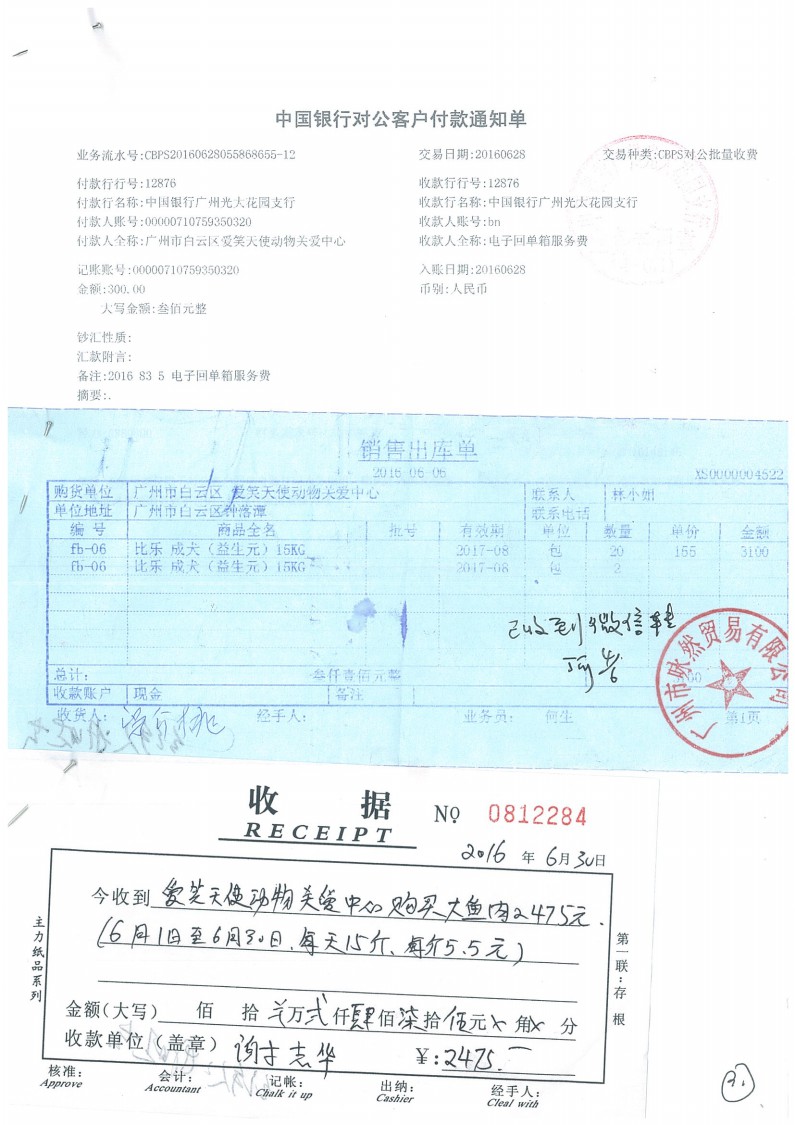 中国银行对公客户付款通知单
业务流水号:CBPS20160628055868655-12 交易日期:20160628 交易种类:CBPS对公批量收费
付款行行号:12876 收款行行号:12876
付款行名称:中国银行广州光大花园支行 收款行名称:中国银行广州光大花园支行
付款人账号:00000710759350320 收款人账号:bn
付款人全称:广州市白云区爱笑天使动物关爱中心 收款人全称:电子回单箱服务费
记账账号:00000710759350320 入账日期:20160628
金额:300.00 币别:人民币
大写金额:叁佰元整
钞汇性质:
汇款附言:
备注:2016 83 5 电子回单箱服务费
摘要:.
销售出库单
2016-06-06 XS0000004522
购货单位 广州市白云区 爱笑天使动物关爱中心 联系人 林小姐
单位地址 广州市白云区钟落潭 联系电话
编 号 商品全名 批号 有效期 单位 数量 单价 金额
fb-06 比乐 成犬(益生元)15KG 2017-08 包 20 155 3100
fb-06 比乐 成犬(益生元)15KG 2017-08 包 2
已收到微信转
总计: 叁仟壹佰元整
收款账户 现金 备注
收货人: 经手人: 业务员: 何生 第1页
广州市咏然贸易有限公司
收 据 № 0812284
RECEIPT
2016 年 6月30日
今收到 爱笑天使动物关爱中心购买大鱼肉2475元.
(6月1日至6月30日.每天15斤、每斤5.5元)
金额(大写) 佰 拾 万贰仟肆佰柒拾伍元 角 分
收款单位(盖章) 谢志华 ¥:2475.
核准: 会计: 记帐: 出纳: 经手人:
Approve Accountant Chalk it up Cashier Cleal with
主力纸品系列
第一联:存根
3.